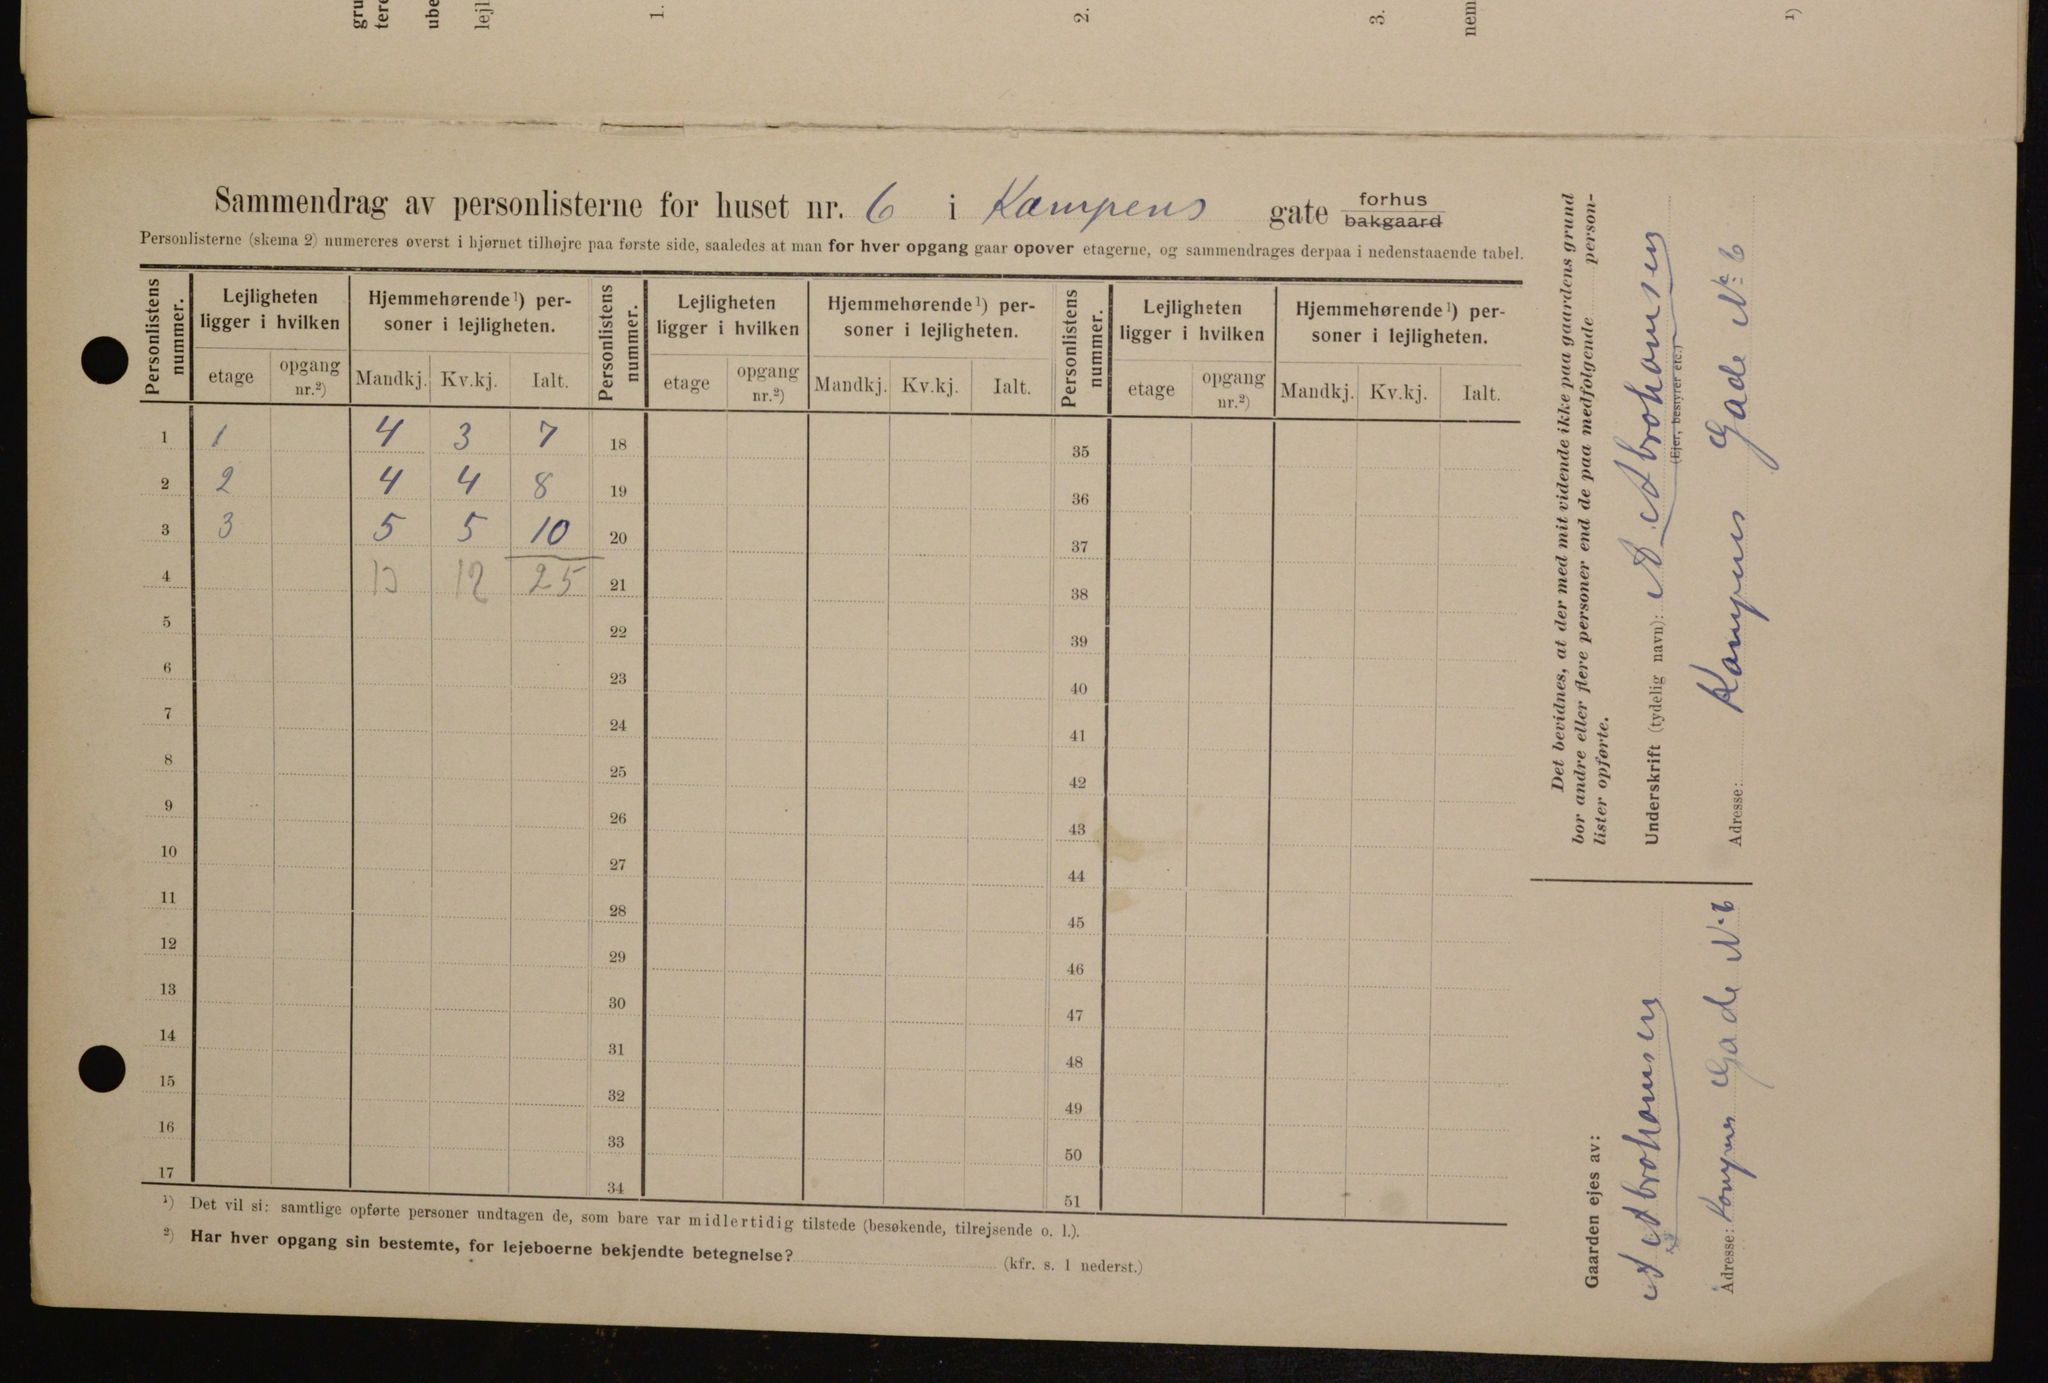 gru
tere
ube
lejl
1.
2.
3.
nem
1)
Sammendrag av personlisterne for huset nr. 6 i Kampens gate forhus ~~bakgaard~~
Personlisterne (skema 2) numereres øverst i hjørnet tilhøjre paa første side, saaledes at man for hver opgang gaar opover etagerne, og sammendrages derpaa i nedenstaaende tabel.
Personlistens nummer. Lejligheten ligger i hvilken Hjemmehørende 1) personer i lejligheten. Personlistens nummer. Lejligheten ligger i hvilken Hjemmehørende 1) personer i lejligheten. Personlistens nummer. Lejligheten ligger i hvilken Hjemmehørende 1) personer i lejligheten.
etage opgang nr.2) Mandkj. Kv.kj. Ialt. etage opgang nr.2) Mandkj. Kv.kj. Ialt. etage opgang nr.2) Mandkj. Kv.kj. Ialt.
1 1 4 3 7 18 35
2 2 4 4 8 19 36
3 3 5 5 10 20 37
4 13 12 25 21 38
5 22 39
6 23 40
7 24 41
8 25 42
9 26 43
10 27 44
11 28 45
12 29 46
13 30 47
14 31 48
15 32 49
16 33 50
17 34 51
1) Det vil si: samtlige opførte personer undtagen de, som bare var midlertidig tilstede (besøkende, tilrejsende o. l.).
2) Har hver opgang sin bestemte, for lejeboerne bekjendte betegnelse? (kfr. s. 1 nederst.)
Det bevidnes, at der med mit vidende ikke paa gaardens grund
bor andre eller flere personer end de paa medfolgende person-
lister opførte.
Underskrift (tydelig navn): A. Abrohamsen
(Ejer, bestyrer etc.)
Adresse: Kampens Gade No 6
Gaarden ejes av:
A Abrohamsen
Adresse: Kampens Gade N. 6